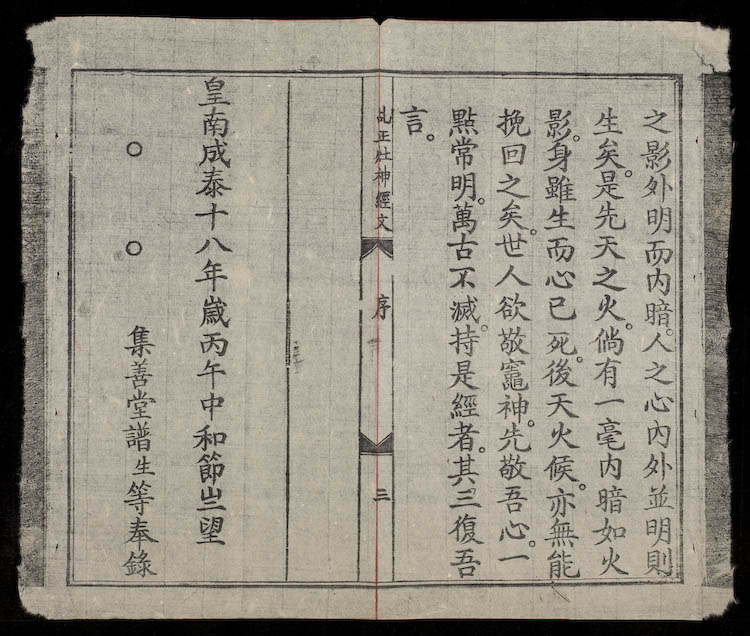 之影外明而内暗。人之心內外並明則
生矣。是先天之火。倘有一毫内暗如火
影。身雖生而心已死。後天火候。亦無能
挽回之矣。世人欲敬竈神。先敬吾心。一
點常明。萬古不滅。持是經者。其三復吾
言。
乩正灶神經文
序
三
皇南成泰十八年歲丙午中和節㞢望
集善堂譜生等奉錄